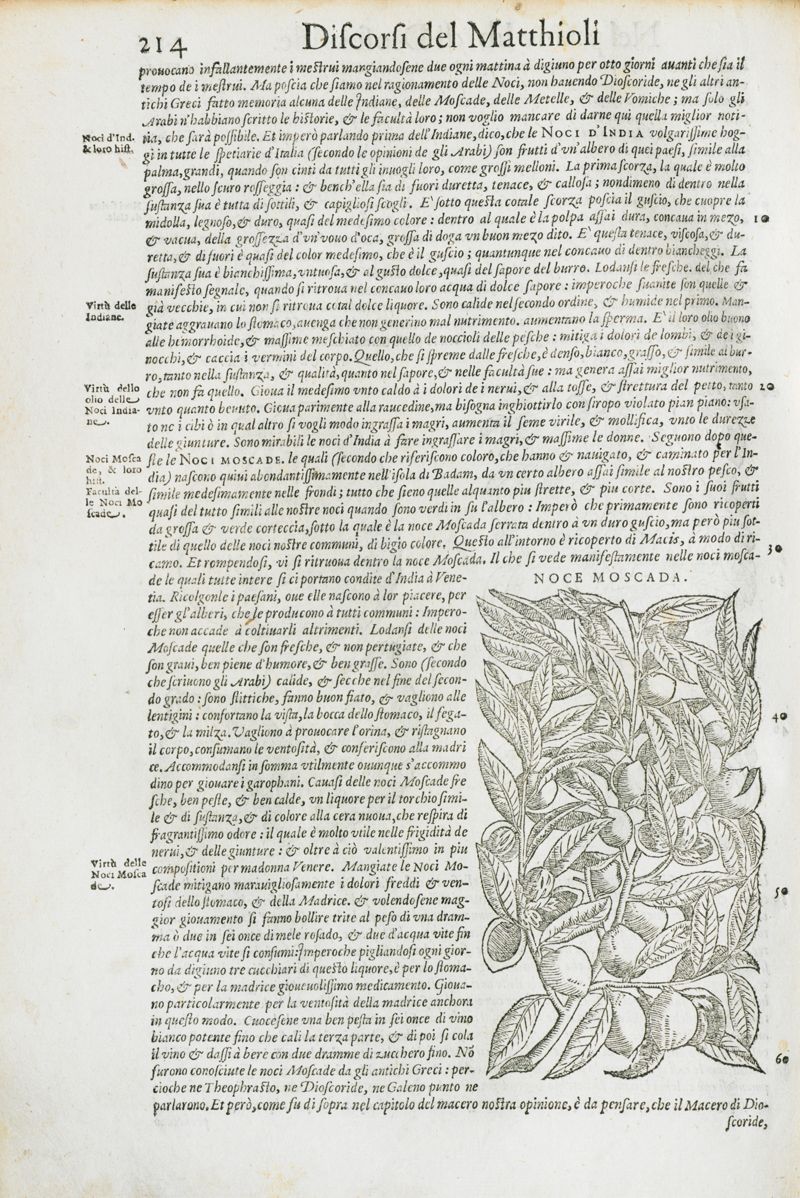 214 Diſcorſi del Matthioli
prouocano infallantemente i meſtrui mangiandoſene due ogni mattina à digiuno per otto giorni auanti che ſia il
tempo de i meſtrui. Ma poſcia che ſiamo nel ragionamento delle Noci, non hauendo Dioſcoride, ne gli altri an-
tichi Greci fatto memoria alcuna delle Indiane, delle Moſcade, delle Metelle, & delle Vomiche; ma ſolo gli
Arabi n'habbiano ſcritto le hiſtorie, & le facultà loro; non voglio mancare di darne quì quella miglior noti-
Noci d'Ind. & loro hiſt.
tia, che ſarà poſſibile. Et imperò parlando prima dell'Indiane, dico, che le NOCI D'INDIA volgariſſime hog-
gi in tutte le ſpetiarie d'Italia (ſecondo le opinioni de gli Arabi) ſon frutti d'vn'albero di quei paeſi, ſimile alla
palma, grandi, quando ſon cinti da tutti gli inuogli loro, come groſſi melloni. La prima ſcorza, la quale è molto
groſſa, nello ſcuro roſſeggia: & bench'ella ſia di fuori duretta, tenace, & calloſa; nondimeno di dentro nella
ſuſtanza ſua è tutta di ſottili, & capiglioſi ſcogli. E' ſotto queſta cotale ſcorza poſcia il guſcio, che cuopre la
midolla, legnoſo, & duro, quaſi del medeſimo colore: dentro al quale è la polpa aſſai dura, concaua in mezo, 10
& vacua, della groſſezza d'vn'vouo d'oca, groſſa di doga vn buon mezo dito. E' queſta tenace, viſcoſa, & du-
retta, & di fuori è quaſi del color medeſimo, che è il guſcio; quantunque nel concauo di dentro biancheggi. La
ſuſtanza ſua è bianchiſſima, vntuoſa, & al guſto dolce, quaſi del ſapore del burro. Lodanſi le freſche. del che fa
manifeſto ſegnale, quando ſi ritroua nel concauo loro acqua di dolce ſapore: imperoche ſuanite ſon quelle &
Virtù delle Indiane.
già vecchie, in cui non ſi ritroua cotal dolce liquore. Sono calide nel ſecondo ordine, & humide nel primo. Man-
giate aggrauano lo ſtomaco, auenga che non generino mal nutrimento. aumentano la ſperma. E' il loro olio buono
alle hemorrhoide, & maſſime meſchiato con quello de noccioli delle peſche: mitiga i dolori de lombi, & de i gi-
nocchi, & caccia i vermini del corpo. Quello, che ſi ſpreme dalle freſche, è denſo, bianco, graſſo, & ſimile al bur-
ro, tanto nella ſuſtanza, & qualità, quanto nel ſapore, & nelle facultà ſue: ma genera aſſai miglior nutrimento,
Virtù dello olio delle Noci Indiane.
che non fa quello. Gioua il medeſimo vnto caldo à i dolori de i nerui, & alla toſſe, & ſtrettura del petto, tanto 20
vnto quanto beuuto. Gioua parimente alla raucedine, ma biſogna inghiottirlo con ſiropo violato pian piano: vſa-
to ne i cibi ò in qual altro ſi vogli modo ingraſſa i magri, aumenta il ſeme virile, & mollifica, vnto le durezze
delle giunture. Sono mirabili le noci d'India à fare ingraſſare i magri, & maſſime le donne. Seguono dopo que-
Noci Moſcade, & loro hiſt.
ſte le NOCI MOSCADE. le quali (ſecondo che riferiſcono coloro, che hanno & nauigato, & caminato per l'In-
dia) naſcono quiui abondantiſſimamente nell'iſola di Badam, da vn certo albero aſſai ſimile al noſtro peſco, &
Facultà delle Noci Moſcade.
ſimile medeſimamente nelle frondi; tutto che ſieno quelle alquanto piu ſtrette, & piu corte. Sono i ſuoi frutti
quaſi del tutto ſimili alle noſtre noci quando ſono verdi in ſu l'albero: Imperò che primamente ſono ricoperti
da groſſa & verde corteccia, ſotto la quale è la noce Moſcada ſerrata dentro à vn duro guſcio, ma però piu ſot-
tile di quello delle noci noſtre communi, di bigio colore. Queſto all'intorno è ricoperto di Macis, à modo di ri-
camo. Et rompendoſi, vi ſi ritruoua dentro la noce Moſcada. Il che ſi vede manifeſtamente nelle noci moſca- 30
de le quali tutte intere ſi ci portano condite d'India à Vene-
tia. Ricolgonle i paeſani, oue elle naſcono à lor piacere, per
eſſer gl'alberi, che le producono à tutti communi: Impero-
che non accade à coltiuarli altrimenti. Lodanſi delle noci
Moſcade quelle che ſon freſche, & non pertugiate, & che
ſon graui, ben piene d'humore, & ben graſſe. Sono (ſecondo
che ſcriuono gli Arabi) calide, & ſecche nel fine del ſecon-
do grado: ſono ſtittiche, fanno buon fiato, & vagliono alle
lentigini: confortano la viſta, la bocca dello ſtomaco, il fega-
to, & la milza. Vagliono à prouocare l'orina, & riſtagnano
il corpo, conſumano le ventoſità, & conferiſcono alla madri
ce. Accommodanſi in ſomma vtilmente ouunque s'accommo
dino per giouare i garophani. Cauaſi delle noci Moſcade fre
ſche, ben peſte, & ben calde, vn liquore per il torchio ſimi-
le & di ſuſtanza, & di colore alla cera nuoua, che reſpira di
fragrantiſſimo odore: il quale è molto vtile nelle frigidità de
nerui, & delle giunture: & oltre à ciò valentiſſimo in piu
Virtù delle Noci Moſcade.
compoſitioni per madonna Venere. Mangiate le Noci Mo-
ſcade mitigano marauiglioſamente i dolori freddi & ven-
toſi dello ſtomaco, & della Madrice. & volendoſene mag-
gior giouamento ſi fanno bollire trite al peſo di vna dram-
ma ò due in ſei once di mele roſado, & due d'acqua vite fin
che l'acqua vite ſi conſumi: Imperoche pigliandoſi ogni gior-
no da digiuno tre cucchiari di queſto liquore, è per lo ſtoma-
cho, & per la madrice gioueuoliſſimo medicamento. Gioua-
no particolarmente per la ventoſità della madrice anchora
in queſto modo. Cuoceſene vna ben peſta in ſei once di vino
bianco potente fino che cali la terza parte, & di poi ſi cola
il vino & daſſi à bere con due dramme di zucchero fino. Nō
furono conoſciute le noci Moſcade da gli antichi Greci: per-
cioche ne Theophraſto, ne Dioſcoride, ne Galeno punto ne
parlarono. Et però, come fu di ſopra nel capitolo del macero noſtra opinione, è da penſare, che il Macero di Dio-
ſcoride,
NOCE MOSCADA.
40
50
60